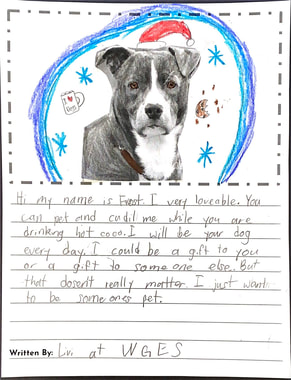 I ♥ Dogs
Hi my name is Frost. I very loveable. You
can pet and cudil me while you are
drinking hot coco. I will be your dog
every day. I could be a gift to you
or a gift to someone else. But
that dosen't really matter. I just want
to be someones pet.
Written By: Livi at WGES